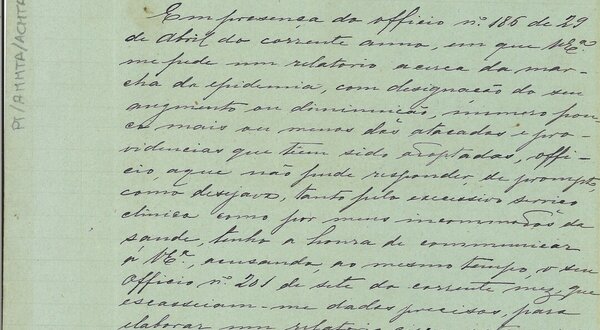 PT/AMMTA/ACMTA
Em presença do officio nº 186 de 29
de Abril do corrente anno, em que V.Eª.
me pede um relatorio acerca da mar-
cha da epidemia, com designação do seu
augmento ou diminuição, numero pou-
co mais ou menos dos atacados e pro-
videncias que tem sido adoptadas, offi-
cio, a que não pude responder, de prompto,
como desejava, tanto pelo excessivo serviço
clinico como por meus incommodos de
saude, tenho a honra de communicar
á V.Eª., acusando, ao mesmo tempo, o seu
Officio nº 201 de sete do corrente mez, que
escasseiam-me dados precisos, para
elaborar um relatorio